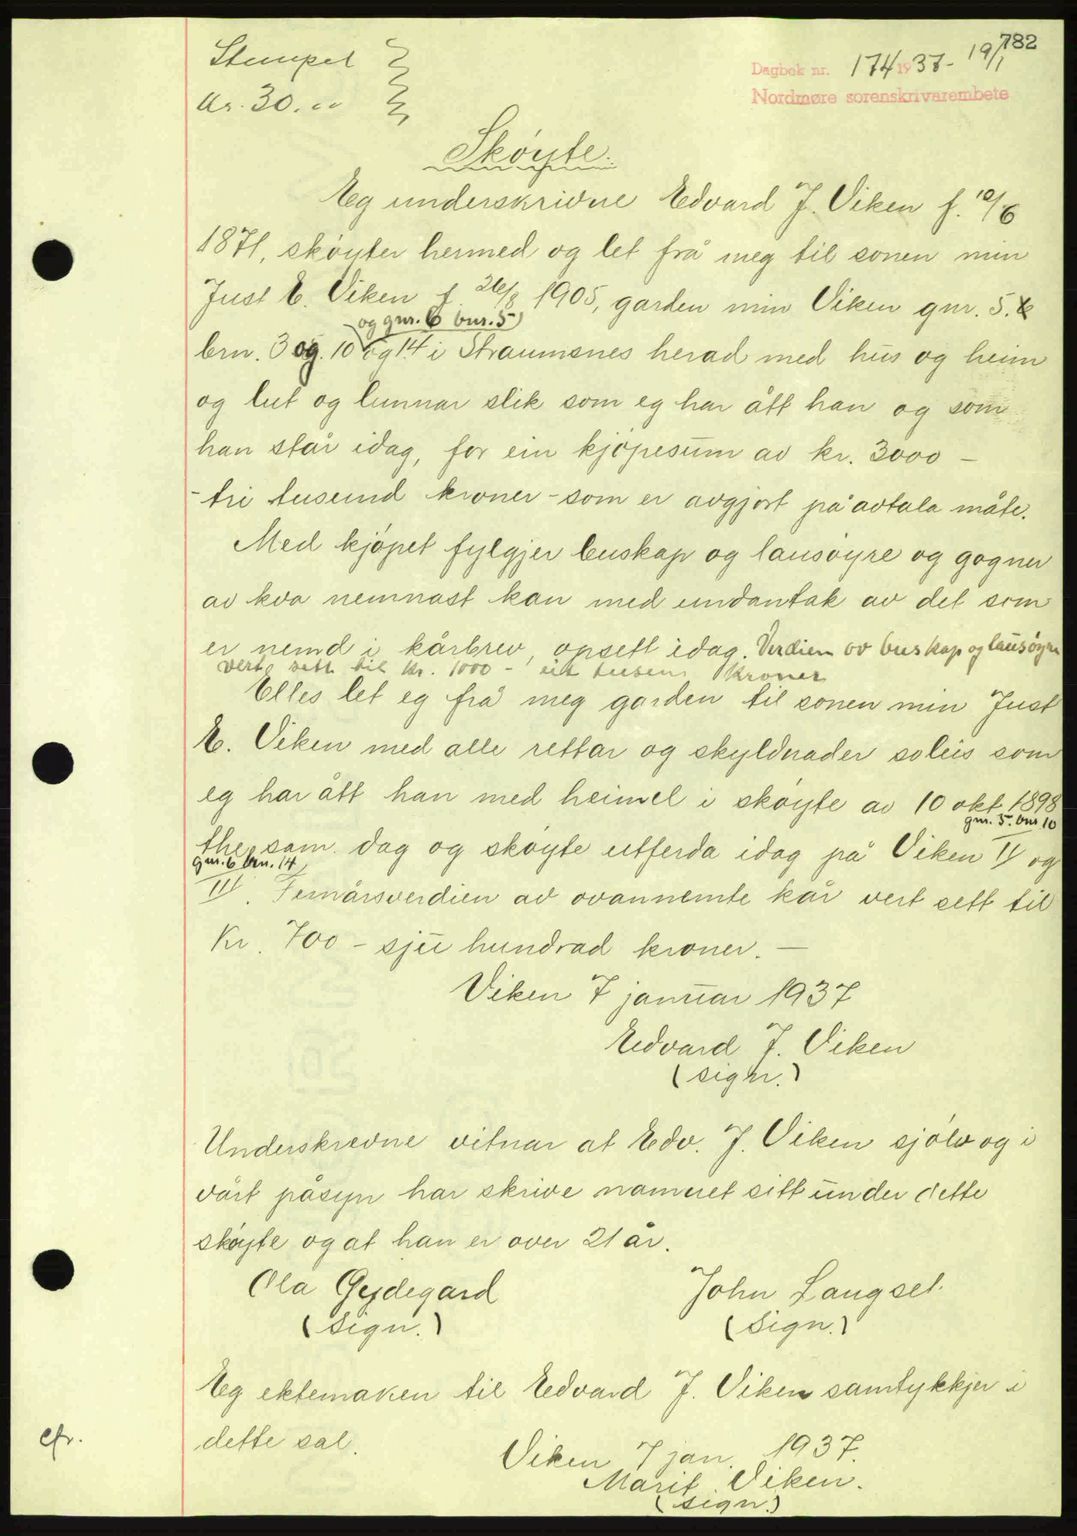 782
Stempel
Kr. 30.00
Dagbok nr. 174 1937 - 19/1
Nordmøre sorenskrivarembete
Skøyte.
Eg underskrivne Edvard J. Viken f. 10/6
1871, skøyter hermed og let frå meg til sonen min
Just E. Viken f. 26/8 1905, garden min Viken gnr. 5.
og gnr. 6 bnr. 5)
brn. 3 og 10 og 14 i Straumsnes herad med hus og heim
og lut og lunnar slik som eg har ått han og som
han står idag, for ein kjøpesum av kr. 3000 -
- tri tuseund kroner - som er avgjort på avtala måte.
Med kjøpet fylgjer buskap og lausøyre og gogner
av kva nemnast kan med undantak av det som
er nemd i kårbrev, opsett idag. Verdien av buskap og lausøyre
vert sett til kr. 1000 - eit tusen kroner
Elles let eg frå meg garden til sonen min Just
E. Viken med alle rettar og skyldnader soleis som
eg har ått han med heimel i skøyte av 10 okt 1898
gnr. 5. bnr 10
sam. dag og skøyte utferda idag på Viken II og
gnr. 6 brn. 14
III. Femårsverdien av ovannemte kår vert sett til
Kr. 700 - sju hundrad kroner. -
Viken 7 januar 1937
Edvard J. Viken
(sign.)
Underskrevne vitnar at Edv. J. Viken sjølv og i
vårt påsyn har skrive namnet sitt under dette
skøyte og at han er over 21 år.
Ola Gydegard John Langset
(sign.) (sign.)
Eg ektemaken til Edvard J. Viken samtykkjer i
dette sal.
cfr.
Viken 7 jan. 1937.
Marit Viken.
(sign.)